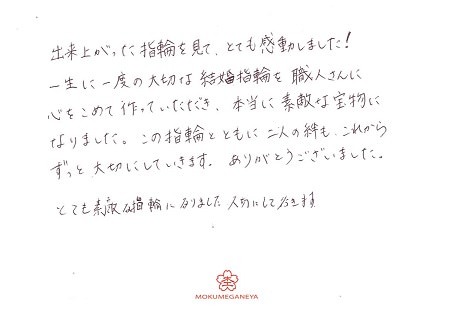 出来上がった指輪を見て、とても感動しました！
一生に一度の大切な結婚指輪を職人さんに
心をこめて作っていただき、本当に素敵な宝物に
なりました。この指輪とともに二人の絆も、これから
ずっと大切にしていきます。ありがとうございました。
とても素敵な指輪になりました 大切にして行きます
MOKUMEGANEYA